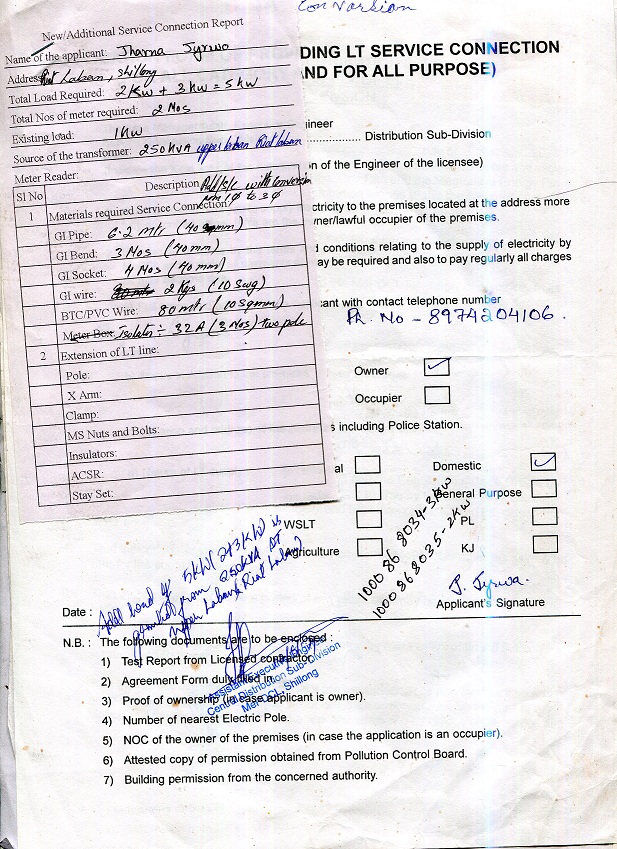 Conversion
New/Additional Service Connection Report
Name of the applicant: Jharna Jyrwo
Address: Riat Laban, Shillong
Total Load Required: 2 KW + 3 KW = 5 KW
Total Nos of meter required: 2 Nos
Existing load: 1 KW
Source of the transformer: 250 KVA upper laban Riat Laban
Meter Reader:
Sl No Description Add/S/C with conversion
from 1Ø to 3Ø
1 Materials required Service Connection:
GI Pipe: 6.2 mtr (40 mm)
GI Bend: 3 Nos (40mm)
GI Socket: 4 Nos (40 mm)
GI wire: 2 Kgs (10 Swg)
BTC/PVC Wire: 80 mtr (10 Sqmm)
Meter Box: Isolator ÷ 32 A (3 Nos) two pole
2 Extension of LT line:
Pole:
X Arm:
Clamp:
MS Nuts and Bolts:
Insulators:
ACSR:
Stay Set:
DING LT SERVICE CONNECTION
ND FOR ALL PURPOSE)
gineer
.................. Distribution Sub-Division
n of the Engineer of the licensee)
ctricity to the premises located at the address more
ner/lawful occupier of the premises.
d conditions relating to the supply of electricity by
ay be required and also to pay regularly all charges
cant with contact telephone number
Ph. No - 8974204106.
Owner
Occupier
s including Police Station.
al Domestic
General Purpose
WSLT PL
Agriculture KJ
1000 86 8034-3KW
1000 86 8035-2KW
Add load of 5KW (2+3KW) is
from 250KVA DT
Upper Laban (Riat Laban)
J. Jyrwa.
Date : Applicant's Signature
N.B. : The following documents are to be enclosed :
1) Test Report from Licensed contractor
2) Agreement Form duly filled in
3) Proof of ownership (in case applicant is owner).
4) Number of nearest Electric Pole.
5) NOC of the owner of the premises (in case the application is an occupier).
6) Attested copy of permission obtained from Pollution Control Board.
7) Building permission from the concerned authority.
Assistant Executive Engineer
Central Distribution Sub-Division
MePDCL, Shillong